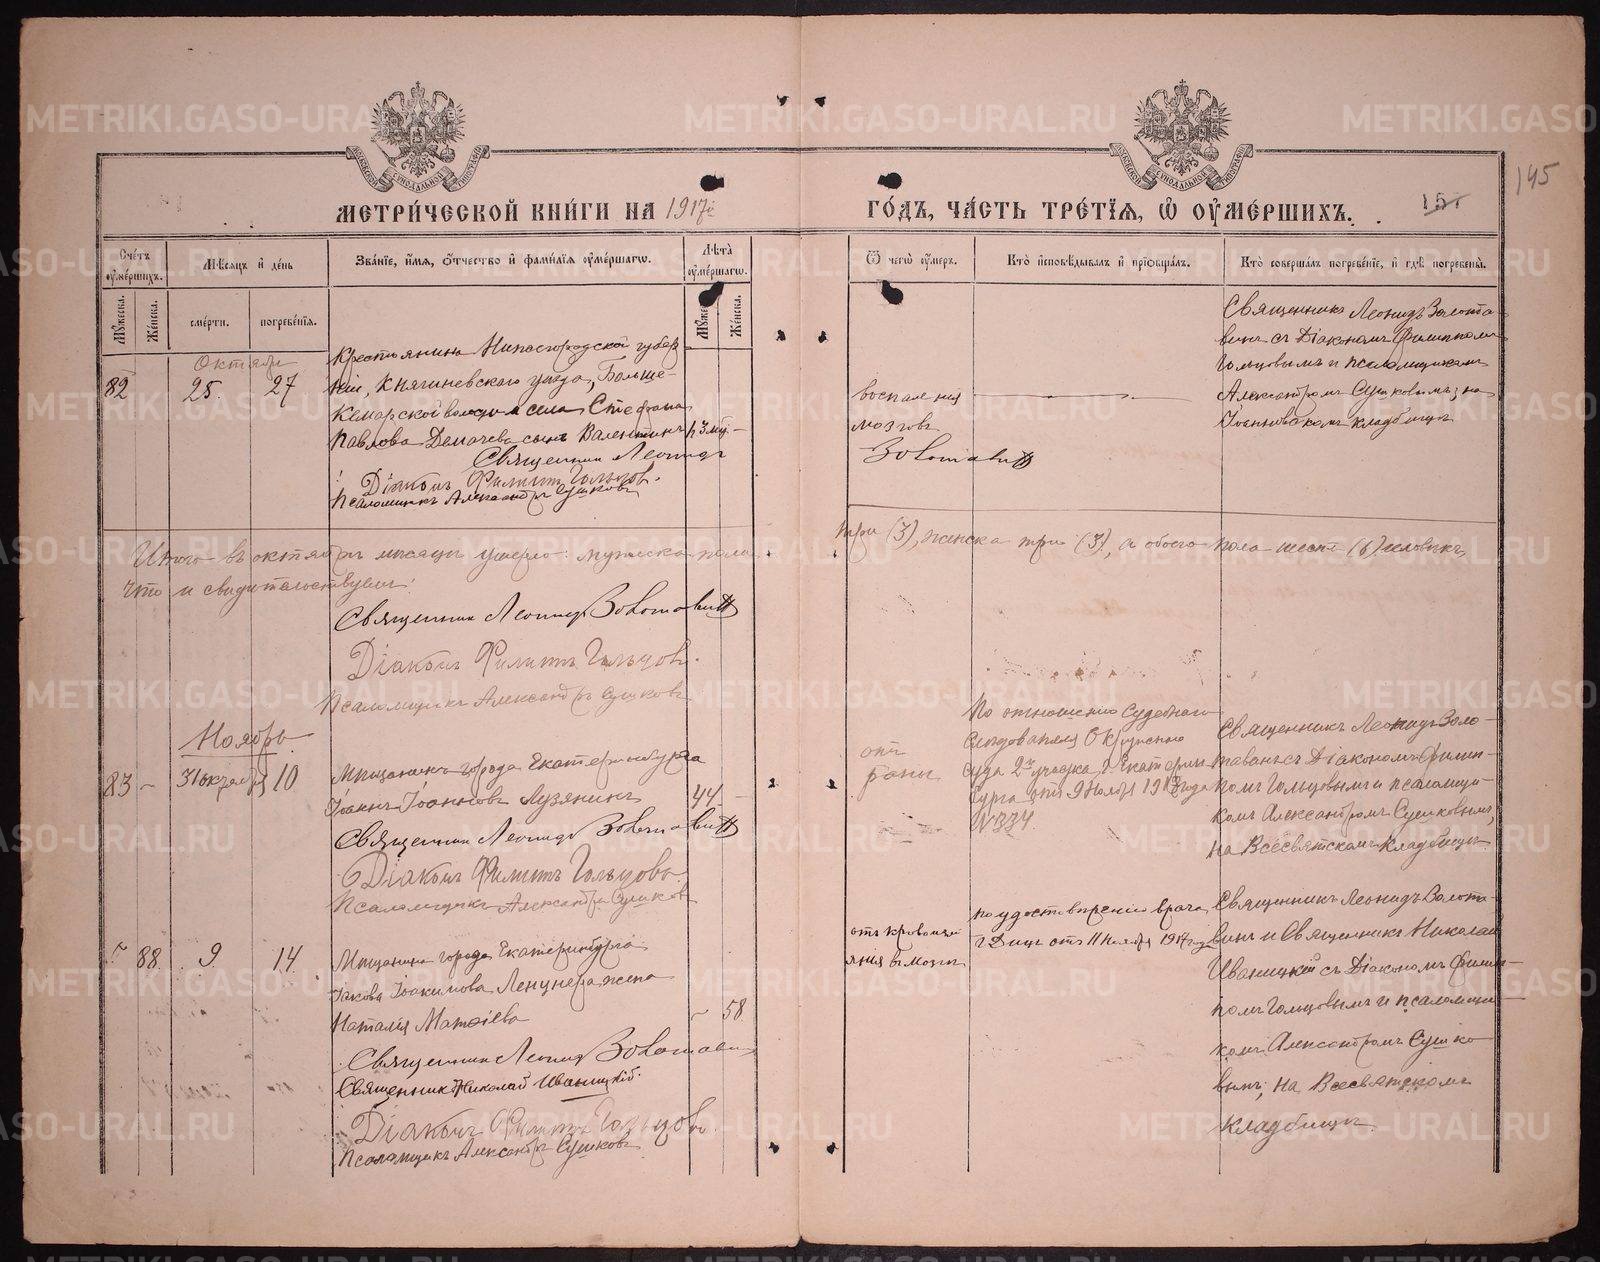 МЕТРИ́ЧЕСКОЙ КНИ́ГИ НА 1917й
ГО́ДЪ, ЧА́СТЬ ТРЕ́ТЇѦ, Ѡ҆ ОУ҆МЕ́РШИХЪ.
151
145
Сче́тъ оу҆ме́ршихъ.
Мѣ́сяцъ и҆ де́нь
Зва́нїе, и҆́мѧ, ѻ҆́тчество и҆ фами́лїѧ оу҆ме́ршагѡ.
Лѣ́та оу҆ме́ршагѡ.
Ѿ чегѡ̀ оу҆́меръ.
Кто̀ и҆сповѣ́дывалъ и҆ прїѡбща́лъ.
Кто̀ соверша́лъ погребе́нїе, и҆ гдѣ̀ погребены̀.
Мꙋ́жеска.
Же́нска.
сме́рти.
погребе́нїѧ.
Мꙋ́жеска.
Же́нска.
Октябрь
82
25.
27
Крестьянина Нижегородской губер
нiи, Княгиневскаго уѣзда, Больше-
Кемарской волости и села Стефана
Павлова Демачева сынъ Валентинъ
Священник Леонид
Дiаконъ Филиппъ Гольцовъ.
Псаломщикъ Александръ Сушковъ
воспаления
мозговъ
Золотавин
Священникъ Леонидъ Золота
винъ съ Дiакономъ Филиппомъ
Гольцовымъ и псаломщикомъ
Александромъ Сушковымъ; на
Iоанновскомъ кладбищѣ
Итого въ октябрѣ мѣсяцѣ умерло: мужеска пола
три (3), женска три (3), а обоего пола шесть (6) человѣкъ,
что и свидѣтельствуемъ:
Священник Леонид Золотавин
Дiаконъ Филиппъ Гольцовъ.
Псаломщикъ Александръ Сушковъ
Ноябрь
83 -
31 октября
10
Мѣщанинъ города Екатеринбурга
Iоаннъ Iоанновъ Лузянинъ
44 -
Священник Леонид Золотавин
Дiаконъ Филиппъ Гольцовъ
Псаломщикъ Александръ Сушковъ
отъ
раны
По отношенiю Судебнаго
Слѣдователя Окружнаго
Суда 2го участка г. Екатерин
бурга отъ 9 Ноября 1917 года
N 334.
Священникъ Леонидъ Золо-
тавинъ съ Дiакономъ Филип-
помъ Гольцовымъ и псаломщи-
комъ Александромъ Сушковымъ,
на Всесвятскомъ кладбищѣ.
88.
9
14.
Мѣщанина города Екатеринбурга
Iакова Iоакимова Ленцнера жена
Наталiя Матѳiева
58.
Священник Леонид Золотавин
Священникъ Николай Иваницкiй.
Дiаконъ Филиппъ Гольцовъ.
Псаломщикъ Александръ Сушковъ
отъ кровоизлi
янiя въ мозгъ
по удостовѣренiю врача
отъ 11 Ноября 1917 года
Священникъ Леонидъ Золота-
винъ и Священникъ Николай
Иваницкiй съ Дiакономъ Филип-
помъ Гольцовымъ и псаломщи-
комъ Александромъ Сушко
вымъ; на Всесвятскомъ
кладбищѣ.
METRIKI.GASO-URAL.RU